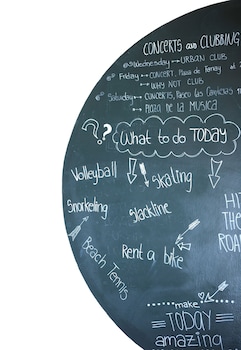 CONCERTS and CLUBBING
Wednesday → URBAN CLUB
Friday → CONCERT, Plaza de
→ WHY NOT CLUB
Saturday → CONCERTS, Paseo las Canteras
→ PLAZA DE LA MUSICA
??
What to do TODAY
Volleyball
Skating
Snorkeling
Slackline
HI
THE
ROA
Beach Tennis
Rent a bike
make
TODAY
amazing